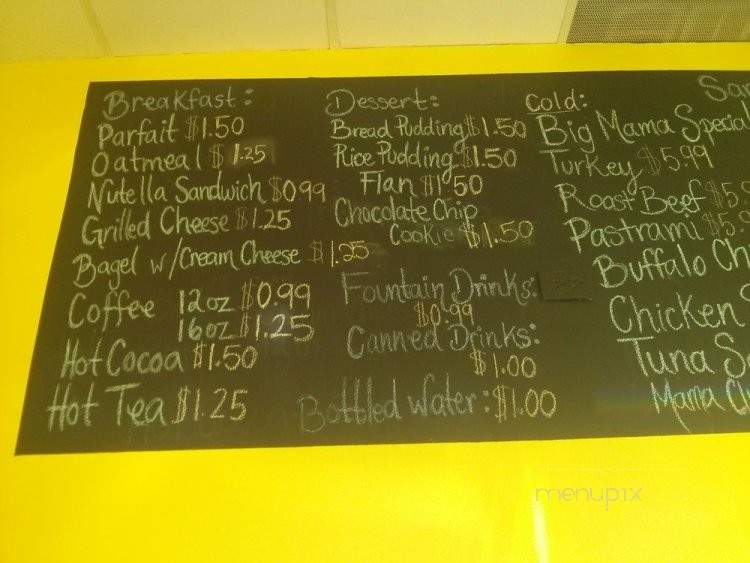 Breakfast:
Parfait $1.50
Oatmeal $1.25
Nutella Sandwich $0.99
Grilled Cheese $1.25
Bagel w/Cream Cheese $1.25
Coffee 12oz $0.99
16oz $1.25
Hot Cocoa $1.50
Hot Tea $1.25
Dessert:
Bread Pudding $1.50
Rice Pudding $1.50
Flan $1.50
Chocolate Chip
Cookie $1.50
Fountain Drinks:
$0.99
Canned Drinks:
$1.00
Bottled Water: $1.00
San
Cold:
Big Mama Special
Turkey $5.99
Roast Beef $5.9
Pastrami $5.
Buffalo Ch
Chicken S
Tuna S
Mama Ch
menupix